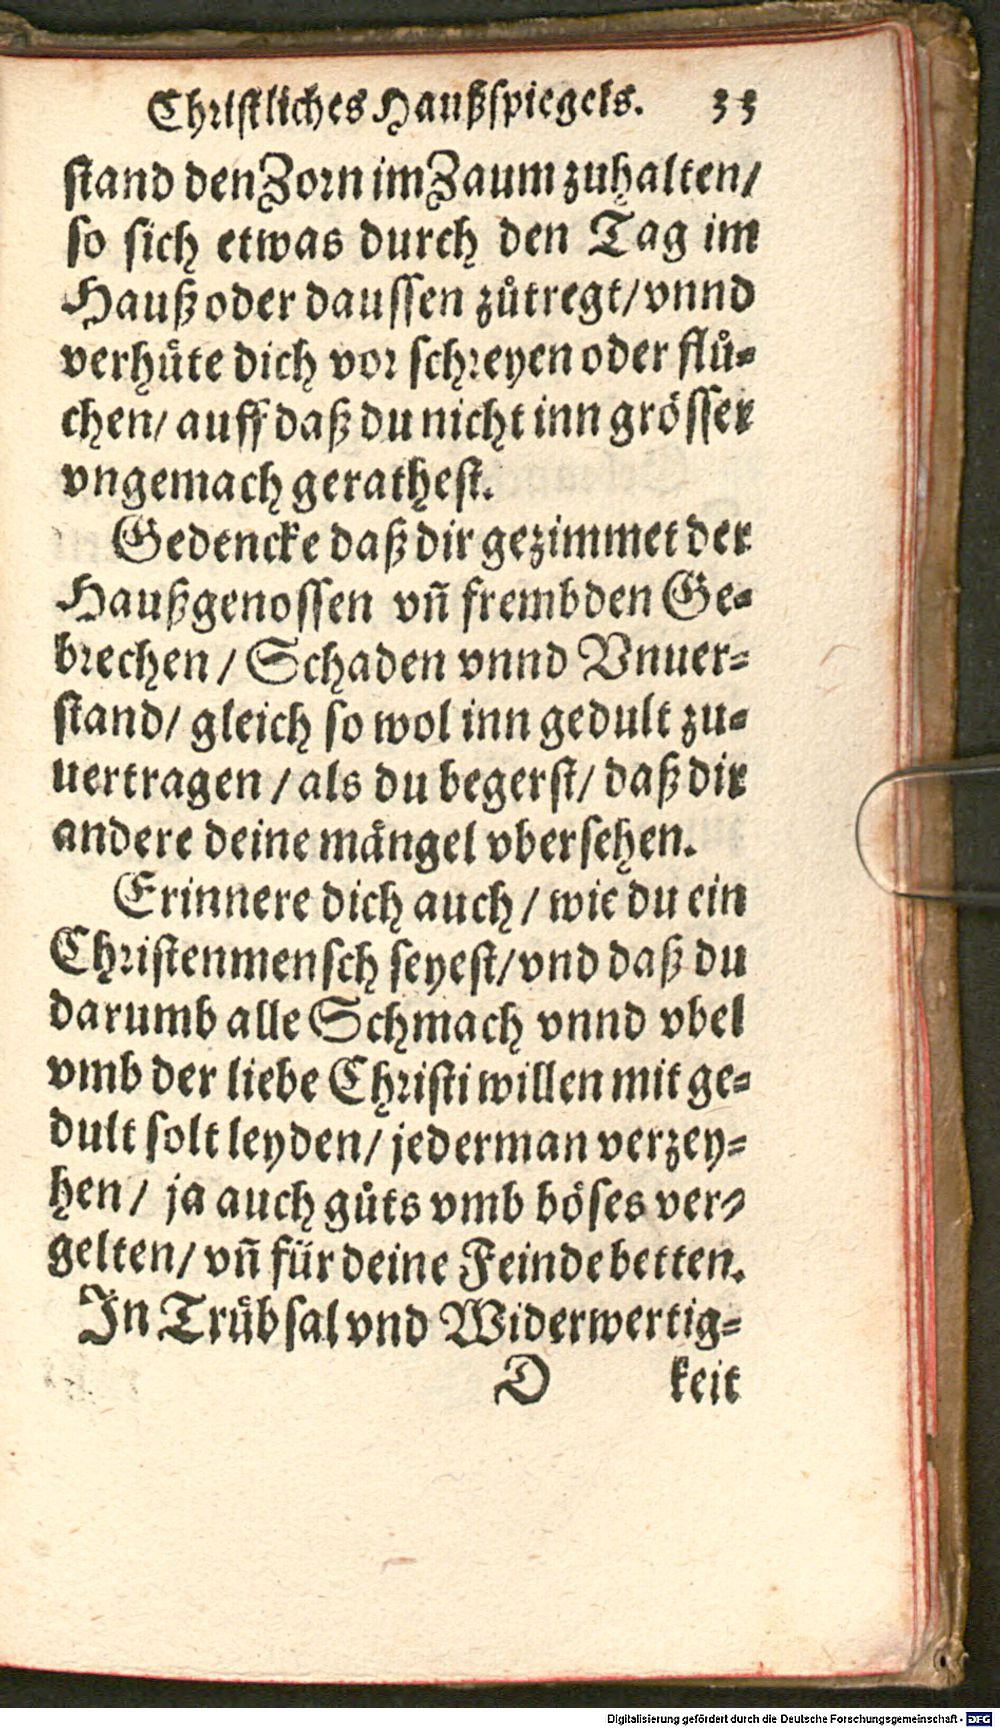 Christliches Haußspiegels. 33
stand den Zorn im Zaum zuhalten/
so sich etwas durch den Tag im
Hauß oder daussen zůtregt/ vnnd
verhüte dich vor schreyen oder flů-
chen/ auff daß du nicht inn grösser
vngemach gerathest.
Gedencke daß dir gezimmet der
Haußgenossen vñ frembden Ge-
brechen/ Schaden vnnd Vnuer-
stand/ gleich so wol inn gedult zu-
uertragen/ als du begerst/ daß dir
andere deine mängel vbersehen.
Erinnere dich auch/ wie du ein
Christenmensch seyest/ vnd daß du
darumb alle Schmach vnnd vbel
vmb der liebe Christi willen mit ge-
dult solt leyden/ jederman verzey-
hen/ ja auch gůts vmb böses ver-
gelten/ vñ für deine Feinde betten.
In Trübsal vnd Widerwertig-
D keit
Digitalisierung gefördert durch die Deutsche Forschungsgemeinschaft - DFG